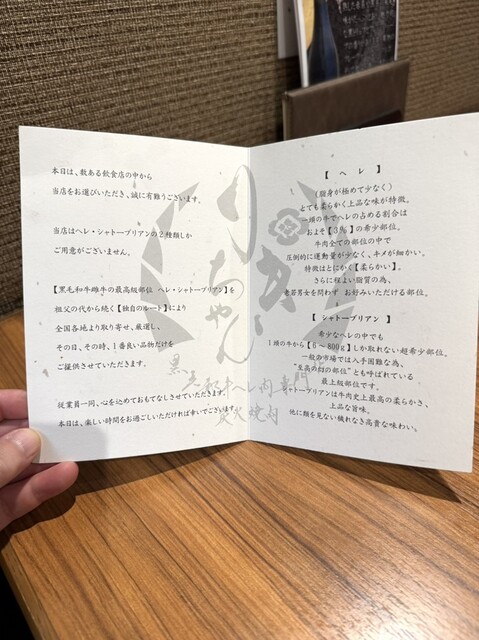 本日は、数ある飲食店の中から
当店をお選びいただき、誠に有難うございます。
当店はヘレ・シャトーブリアンの2種類しか
ご用意がございません。
【黒毛和牛雌牛の最高級部位 ヘレ・シャトーブリアン】を
祖父の代から続く【独自のルート】により
全国各地より取り寄せ、厳選し、
その日、その時、1番良い品物だけを
ご提供させていただきます。
従業員一同、心を込めておもてなしさせていただきます。
本日は、楽しい時間をお過ごしいただければ幸いでございます。
【 ヘ レ 】
(脂身が極めて少なく)
とても柔らかく上品な味が特徴。
一頭の牛でヘレの占める割合は
およそ【3%】の希少部位。
牛肉全ての部位の中で
圧倒的に運動量が少なく、キメが細かい。
特徴はとにかく【柔らかい】。
さらに程よい脂質の為、
老若男女を問わず お好みいただける部位。
【 シャトーブリアン 】
希少なヘレの中でも
1頭の牛から【6〜800g】しか取れない超希少部位。
一般の市場では入手困難な為、
"至高の幻の部位"とも呼ばれている
最上級部位です。
シャトーブリアンは牛肉史上最高の柔らかさ、
上品な旨味。
他に類を見ない穢れなき高貴な味わい。
りかちゃん
黒毛和牛ヘレ肉専門
炭火焼肉